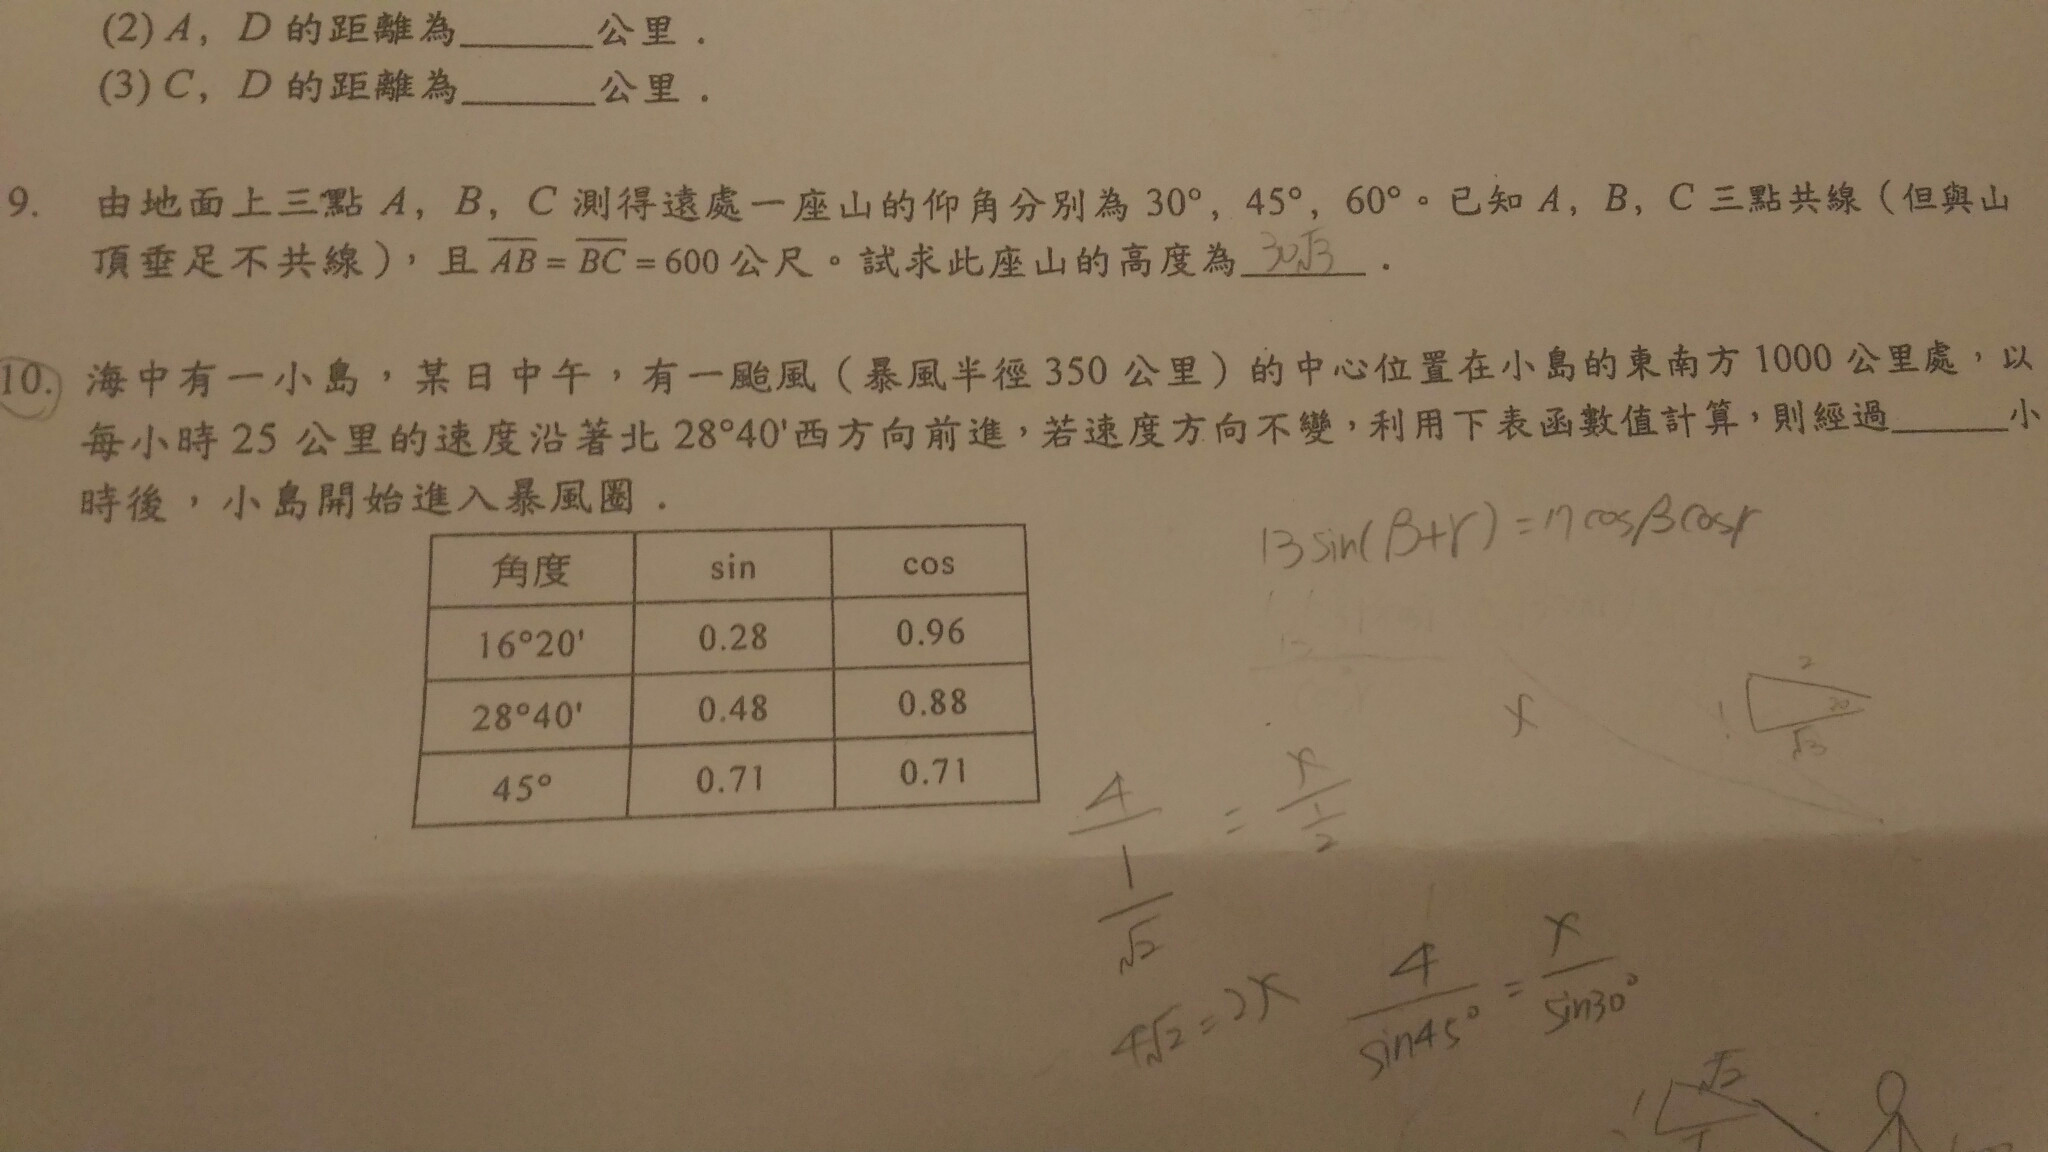 (2) A, D 的距離為______公里．
(3) C, D 的距離為______公里．
9. 由地面上三點 A, B, C 測得遠處一座山的仰角分別為 30°, 45°, 60°。已知 A, B, C 三點共線（但與山
頂垂足不共線），且 AB = BC = 600 公尺。試求此座山的高度為 30√3 ．
10. 海中有一小島，某日中午，有一颱風（暴風半徑 350 公里）的中心位置在小島的東南方 1000 公里處，以
每小時 25 公里的速度沿著北 28°40'西方向前進，若速度方向不變，利用下表函數值計算，則經過______小
時後，小島開始進入暴風圈．
13 sin(β+γ) = 17 cosβ cosγ
角度 sin cos
16°20' 0.28 0.96
28°40' 0.48 0.88
45° 0.71 0.71
x
2
1
√3
4/(1/√2) = x/(1/2)
4√2 = 2x
4/sin45° = x/sin30°
√2
1